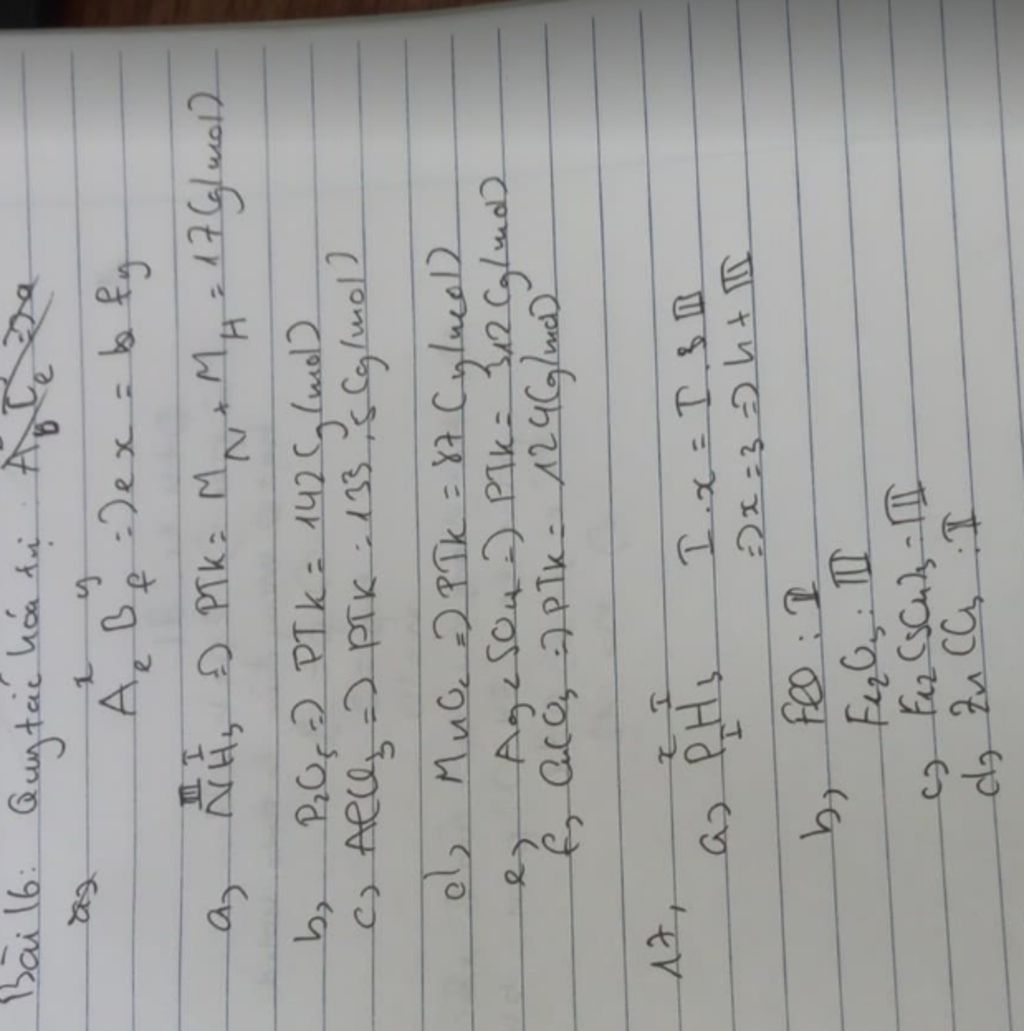 Bài 16: Quy tắc hóa trị:
a,
x y
AₑB_f => ex = b fy
III I
a, NH₃ => PTK = M_N + M_H = 17 (g/mol)
b, P₂O₅ => PTK = 142 (g/mol)
c, AlCl₃ => PTK = 133,5 (g/mol)
d, MnO₂ => PTK = 87 (g/mol)
e, Ag₂SO₄ => PTK = 312 (g/mol)
f, CuCO₃ => PTK = 124 (g/mol)
17,
x I
a, PH₃ I.x = I.3 III
=> x = 3 => h+ III
b, FeO : II
Fe₂O₃ : III
c, Fe₂(SO₄)₃ - III
d, ZnCO₃ : II